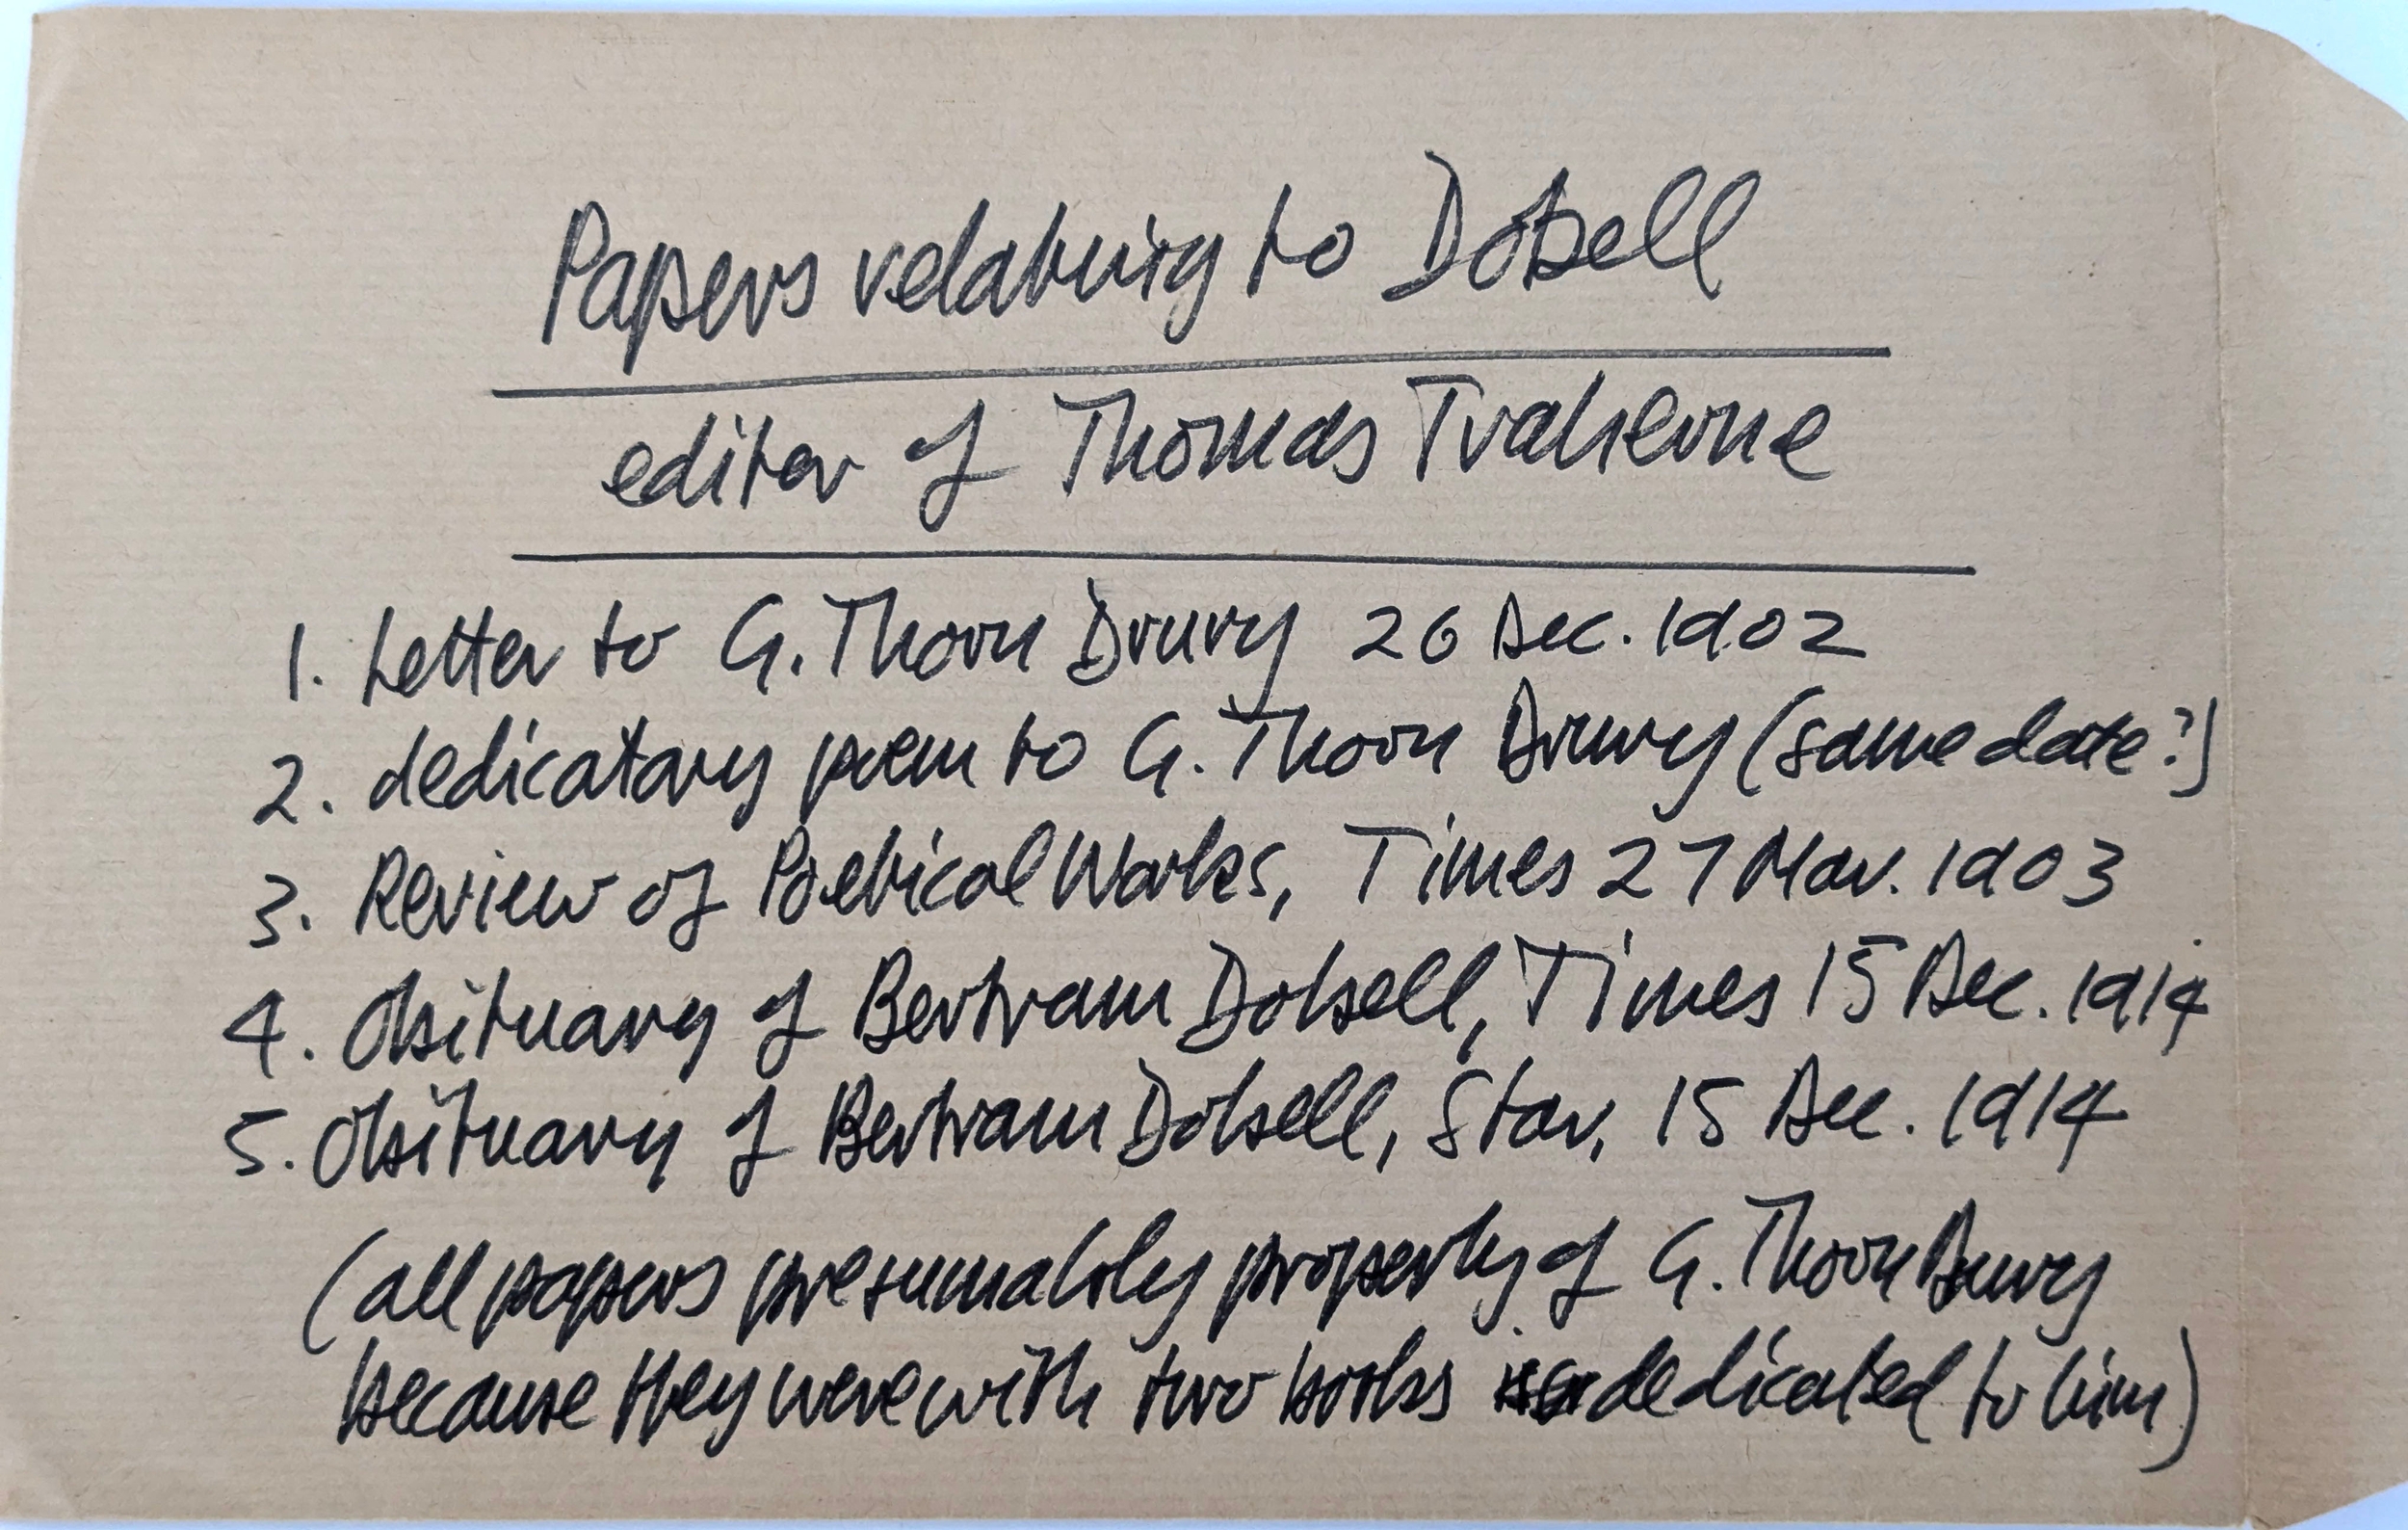 Papers relating to Dobell
editor of Thomas Traherne
1. Letter to G. Thorn Drury 26 Dec. 1902
2. dedicatory poem to G. Thorn Drury (same date?)
3. Review of Poetical Works, Times 27 Mar. 1903
4. Obituary of Bertram Dobell, Times 15 Dec. 1914
5. Obituary of Bertram Dobell, Star, 15 Dec. 1914
(all papers presumably property of G. Thorn Drury
because they were with two books dedicated to him)